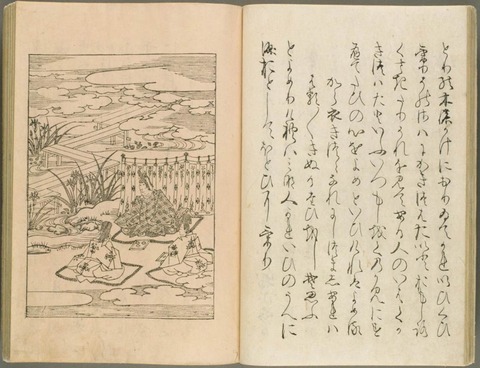 とりの木陰におりゐてかれいひくひ
けりその沢にかきつはたいとおもしろ
くさきたりそれを見てある人のいはくか
きつはたといふいつもしを句のかみにす
へてたひの心をよめといひけれはよめる
から衣きつゝなれにしつましあれは
はる〳〵きぬるたひをしそ思ふ
とよめりけれは皆人かれいひのうへに
涙おとしてほとひにけり